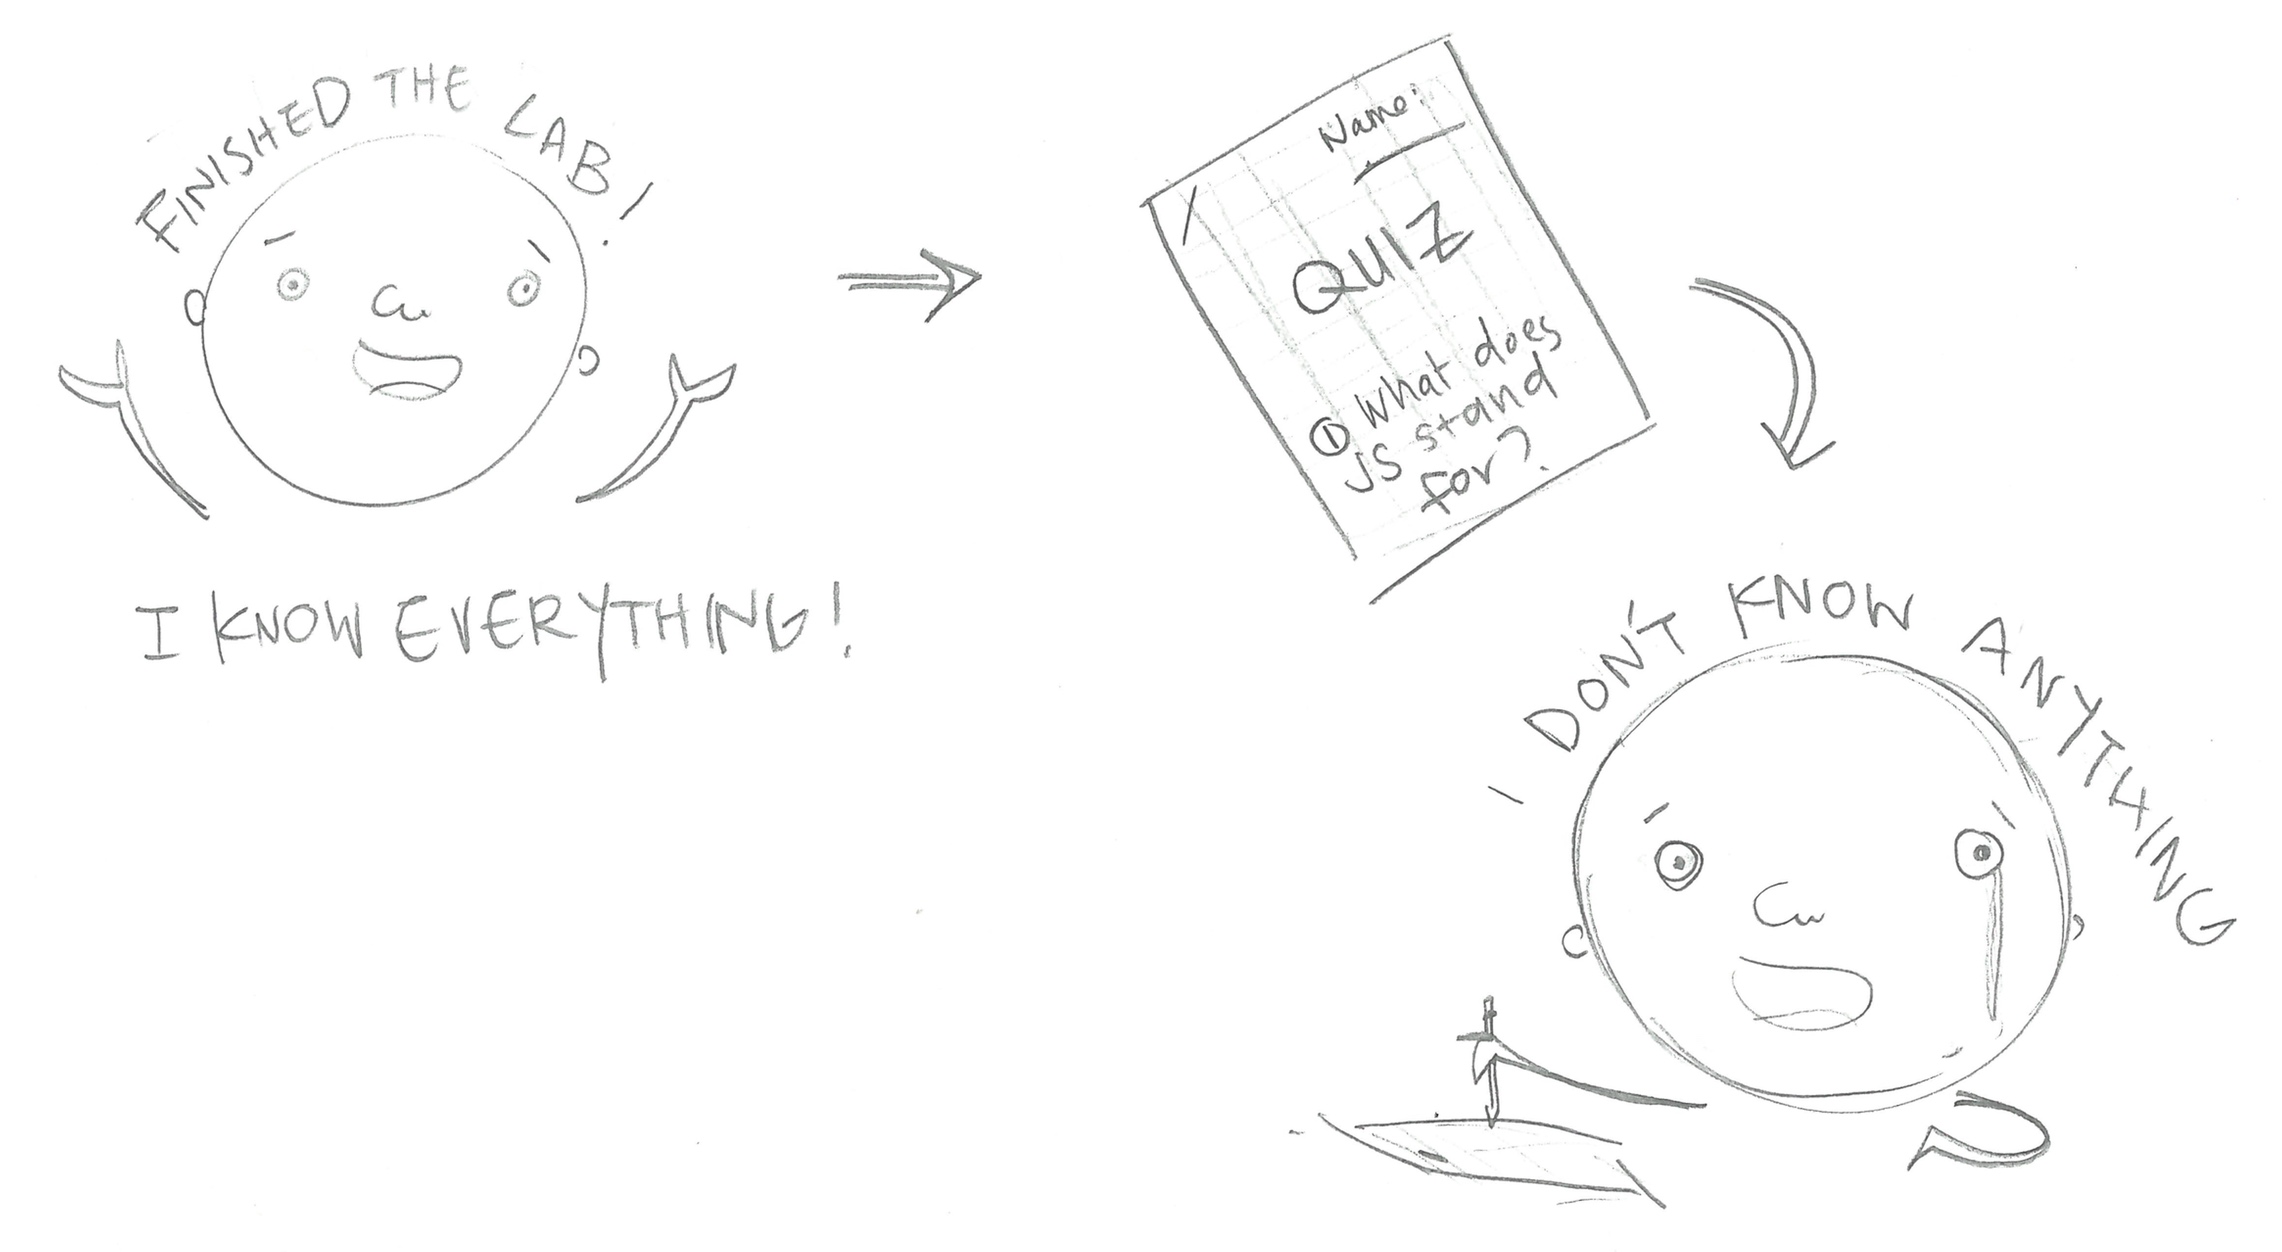 FINISHED THE LAB!
I KNOW EVERYTHING!
Name:
QUIZ
① What does
JS stand
for?
I DON'T KNOW ANYTHING